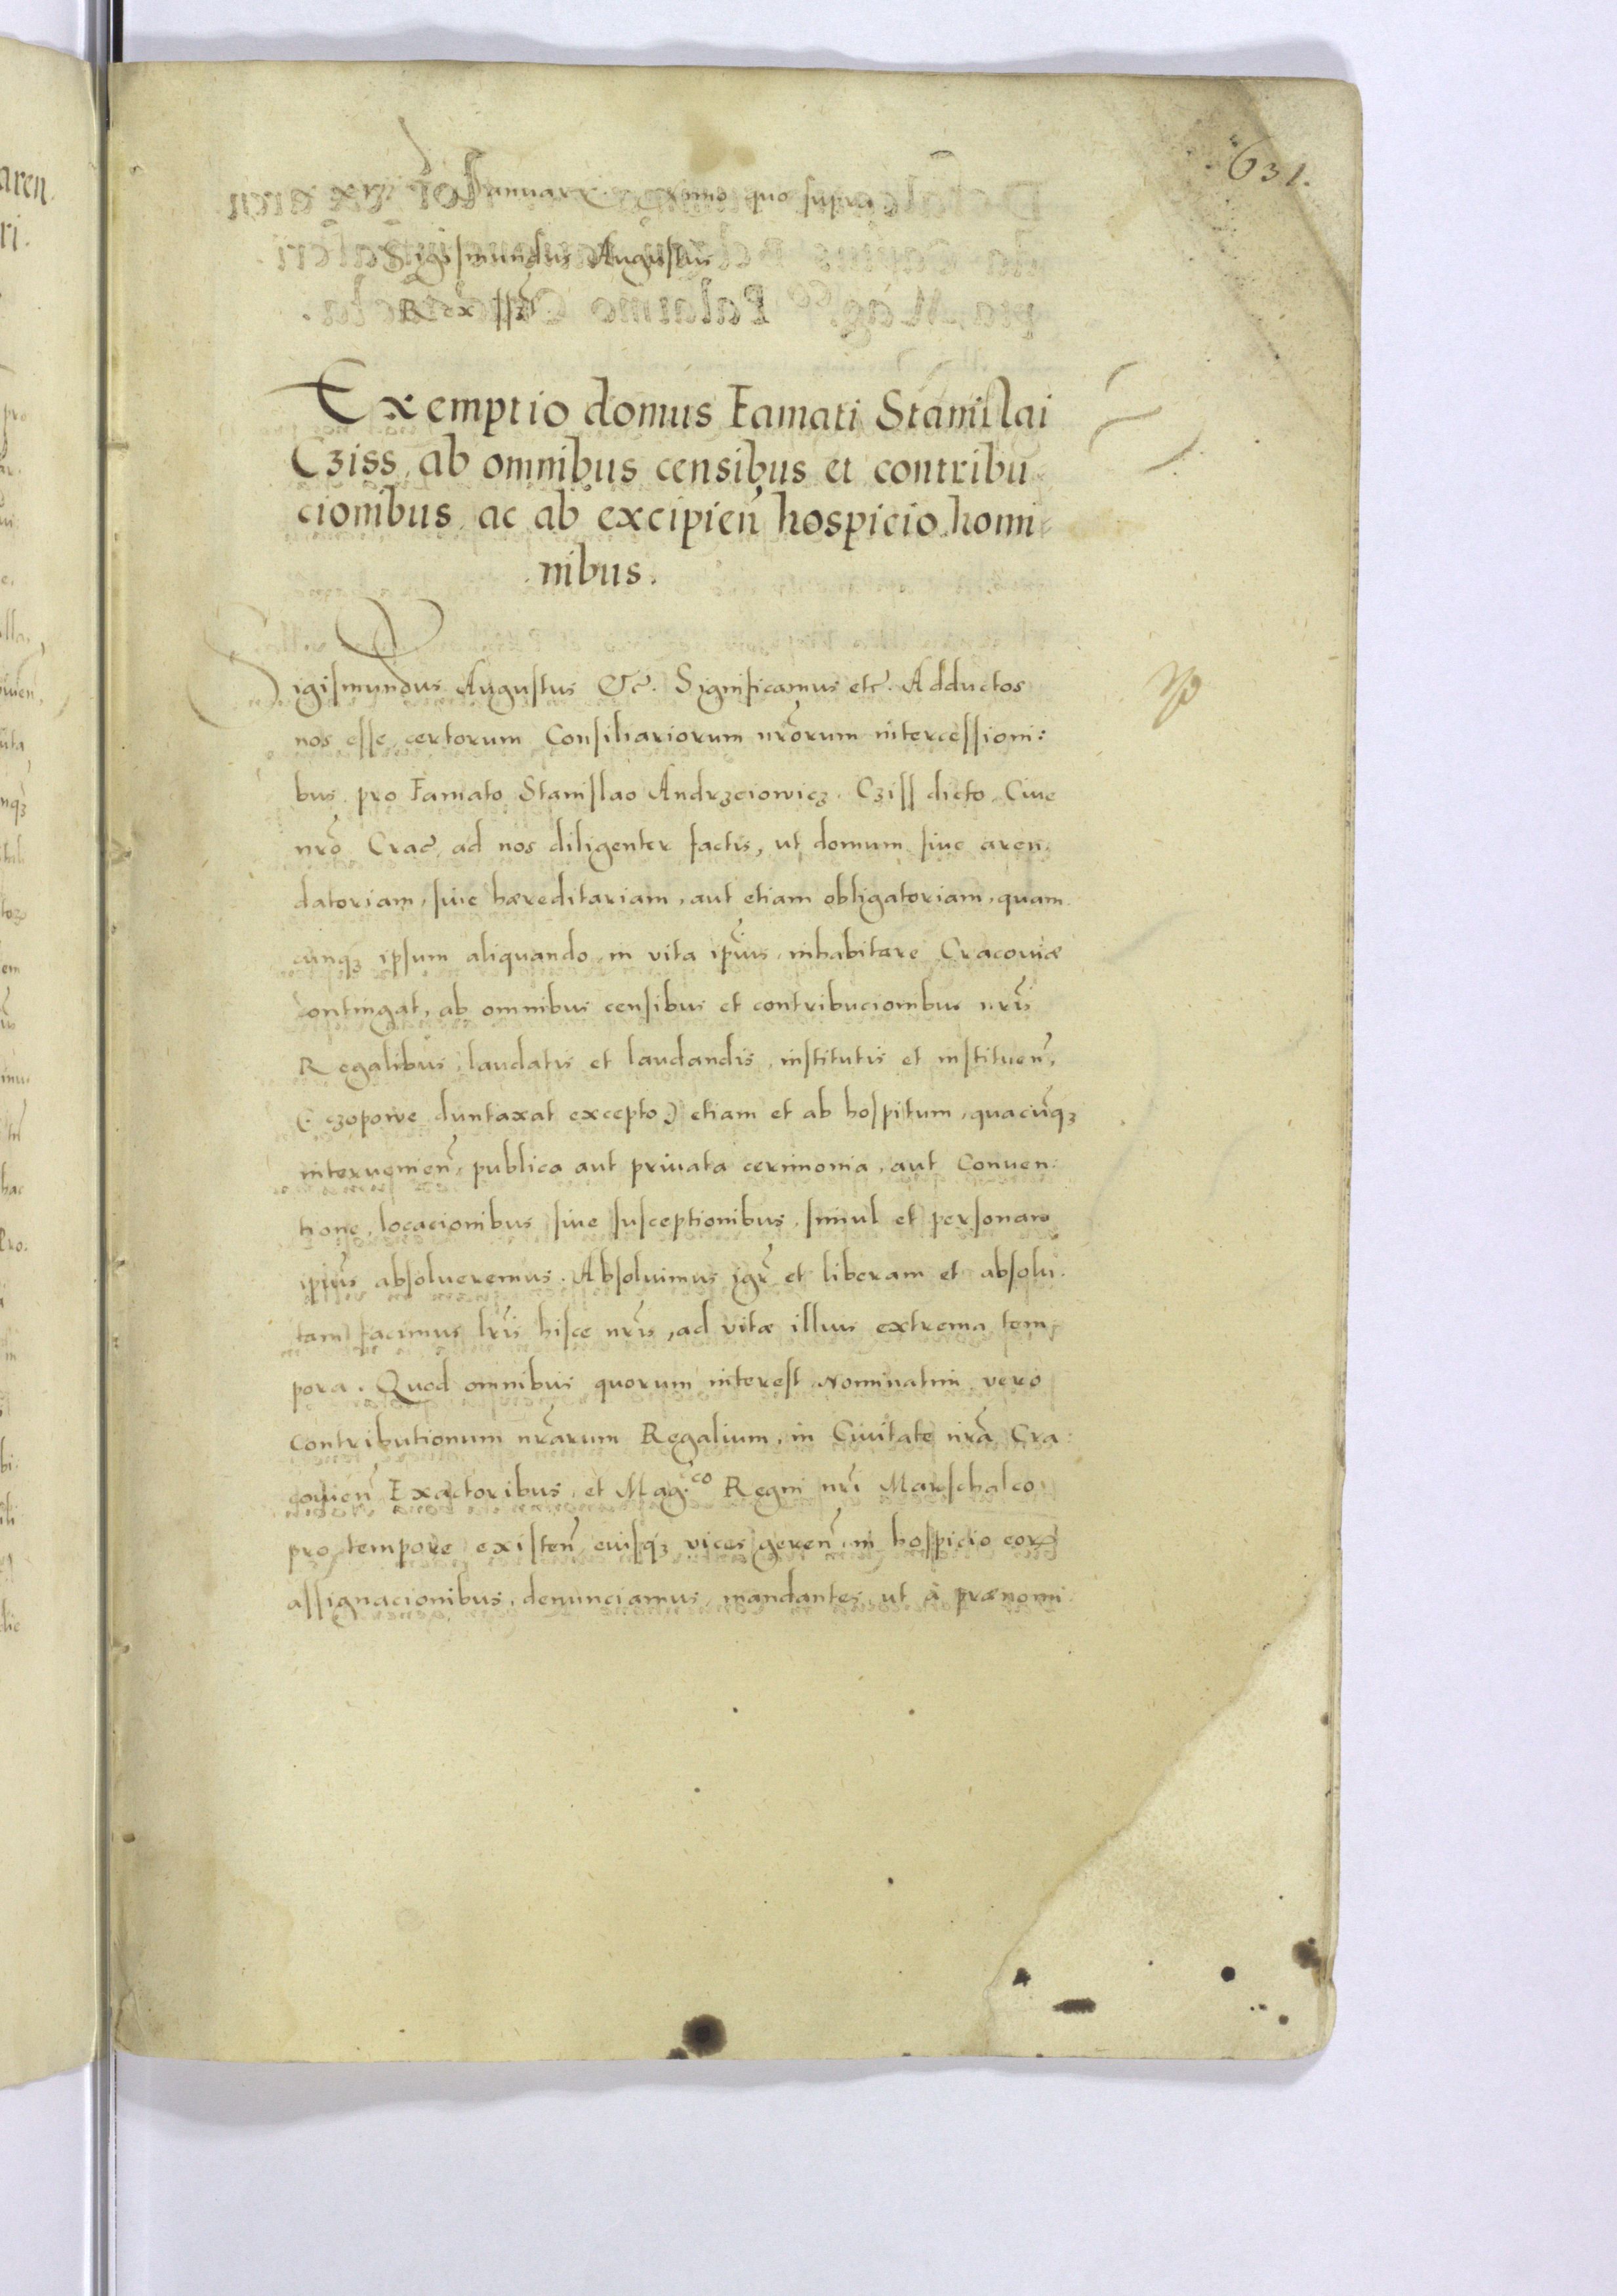 631.
Januarij. Anno quo supra
Sigismundus Augustus
Rex sst
Exemptio domus Famati Stanislai
Cziss, ab omnibus censibus et contribu
cionibus, ac ab excipien̄ hospicio homi=
nibus.
Sigismundus Augustus &c̃. Significamus etc̃. Adductos
nos esse, certorum Consiliariorum nr̃orum intercessioni:
bus, pro Famato Stanislao Andrzeiowicz. Cziss dicto, Ciue
nr̃o Crac̃, ad nos diligenter factis, ut domum siue aren:
datoriam, siue hæreditariam, aut etiam obligatoriam, quam
cunqȝ ipsum aliquando, in vita ip̃ius, inhabitare Cracouiæ
contingat, ab omnibus censibus et contribucionibus nr̃is
Regalibus, laudatis et laudandis, institutis et instituen̄,
(: czopowe duntaxat excepto:) etiam et ab hospitum, quacũqȝ
interuenien̄, publica aut priuata cerimonia, aut Conuen:
tione, locacionibus siue susceptionibus, simul et personam
ip̃ius absolueremus. Absoluimus igr̃ et liberam et absolu:
tam facimus lr̃is hisce nr̃is, ad vitæ illius extrema tem:
pora. Quod omnibus quorum interest Nominatim vero
contributionum nr̃arum Regalium, in Ciuitate nr̃a Cra:
couien̄ Exactoribus, et Mag:co Regni nr̃i Marschalco,
pro tempore existen̄, eiusqȝ vices geren̄, in hospicio eorꝝ
assignacionibus, denunciamus, mandantes, ut à prænomi